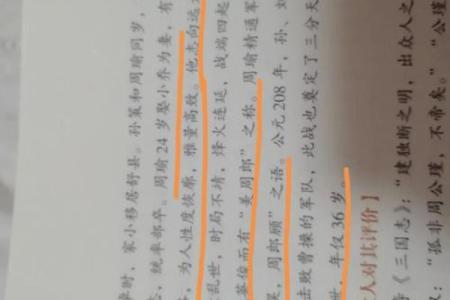 卓时，家小移居舒县。孙策和周瑜同岁，
，统率部卒。周瑜 24 岁娶小乔为妻，有
，为人性度恢廓，雅量高致。他志向远
乱世，时局不靖，烽火连延，战端四起
俊而有“美周郎”之称。周瑜精通军
，周郎顾”之语。公元 208 年，孙、刘
击败曹操的军队，此战也奠定了三分天
世，年仅 36 岁。
人对其评价】
《三国志》：“建独断之明，出众人之
“孤非周公瑾，不帝矣。”“公瑾